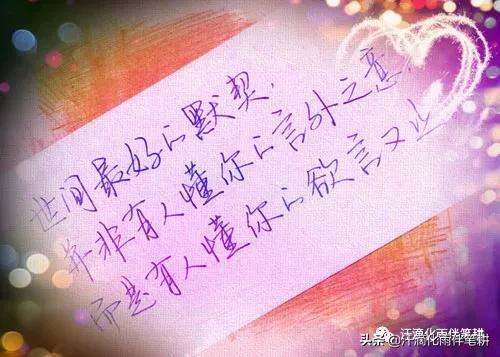 世间最好的默契,
并非有人懂你的言外之意,
而是有人懂你的欲言又止
汗滴化雨伴笔耕
头条@汗滴化雨伴笔耕